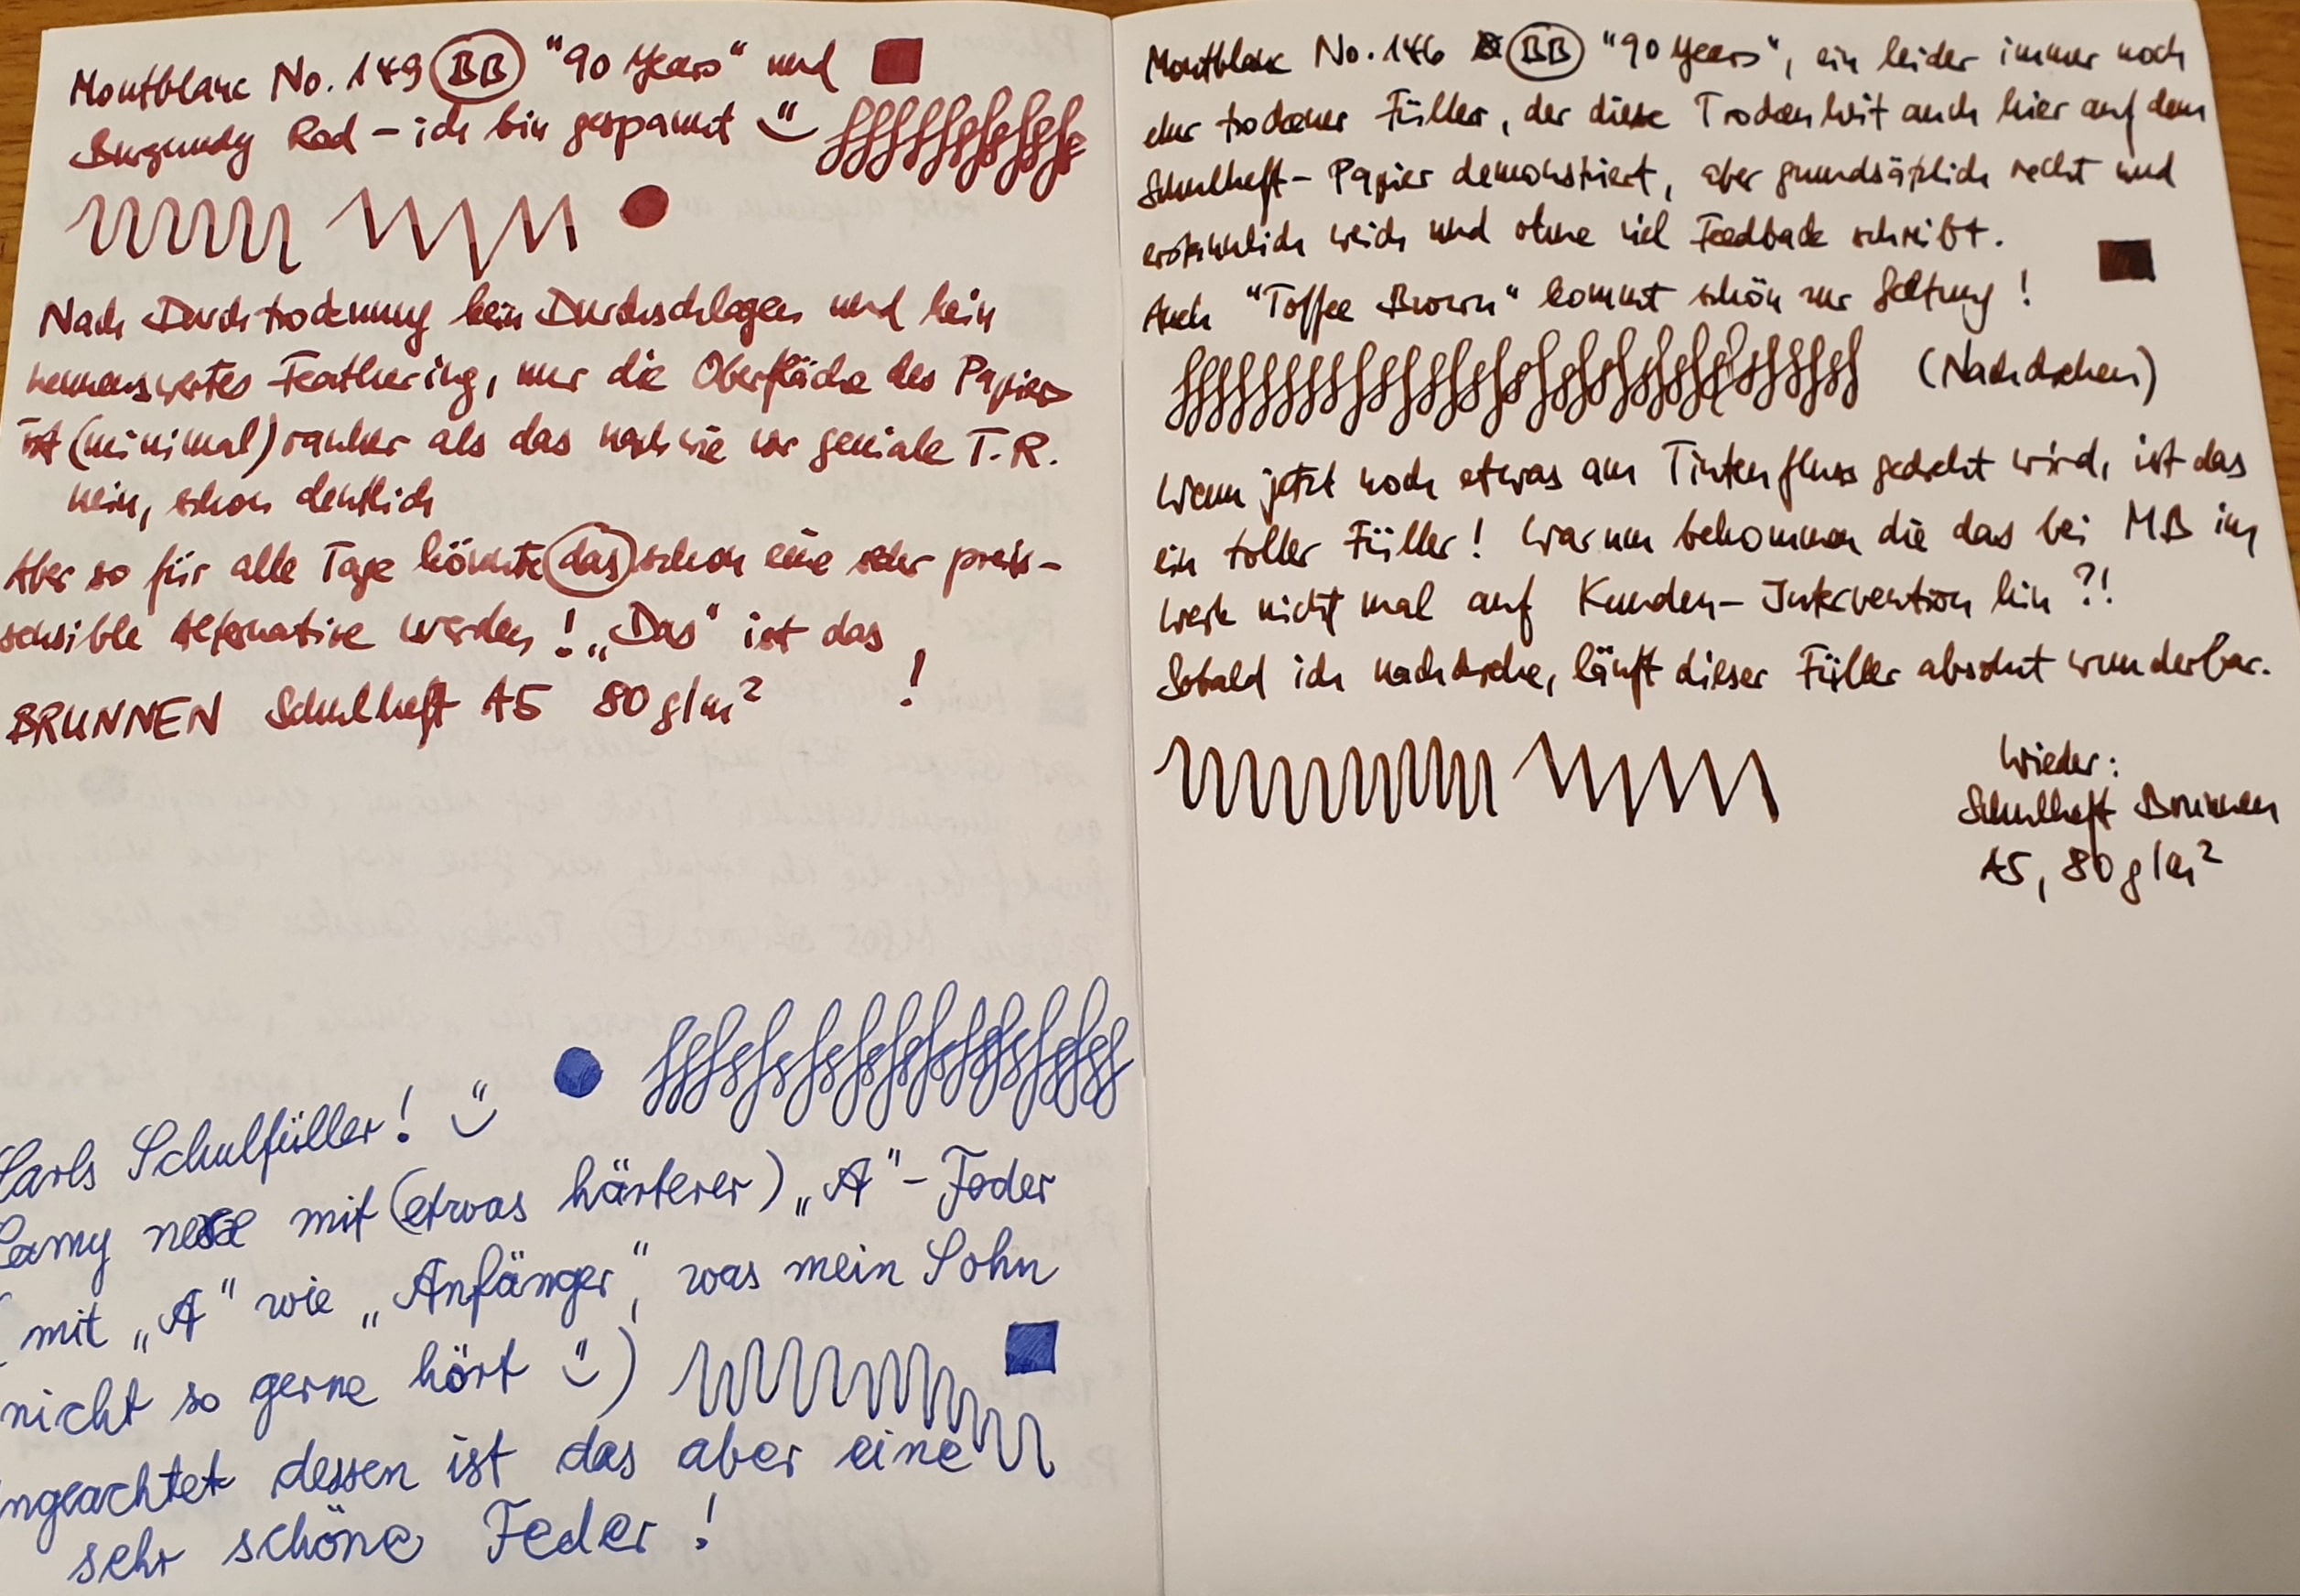 Montblanc No. 149 BB "90 Years" und
Burgundy Red – ich bin gespannt
Nach Durchtrocknung kein Durchschlagen und kein
nennenswertes Feathering, nur die Oberfläche des Papiers
ist (minimal) rauher als das nach wie vor geniale T.R.
nein, schon deutlich
Aber so für alle Tage könnte das schon eine sehr preis-
sensible Alternative werden! „Das" ist das
BRUNNEN Schulheft A5 80 g/m² !
Carls Schulfüller!
Lamy mit (etwas härterer) „A"-Feder
( mit „A" wie „Anfänger", was mein Sohn
nicht so gerne hört )
ngeachtet dessen ist das aber eine
sehr schöne Feder!
Montblanc No. 146 BB "90 Years", ein leider immer noch
eher trockener Füller, der diese Trockenheit auch hier auf dem
Schulheft-Papier demonstriert, aber grundsätzlich recht und
erstaunlich weich und ohne viel Feedback schreibt.
Auch "Toffee Brown" kommt schön zur Geltung!
(Nachdrehen)
Wenn jetzt noch etwas am Tintenfluss gedreht wird, ist das
ein toller Füller! Warum bekommen die das bei MB im
Werk nicht mal auf Kunden-Intervention hin?!
Sobald ich nachdrehe, läuft dieser Füller absolut wunderbar.
Wieder:
Schulheft Brunnen
A5, 80 g/m²